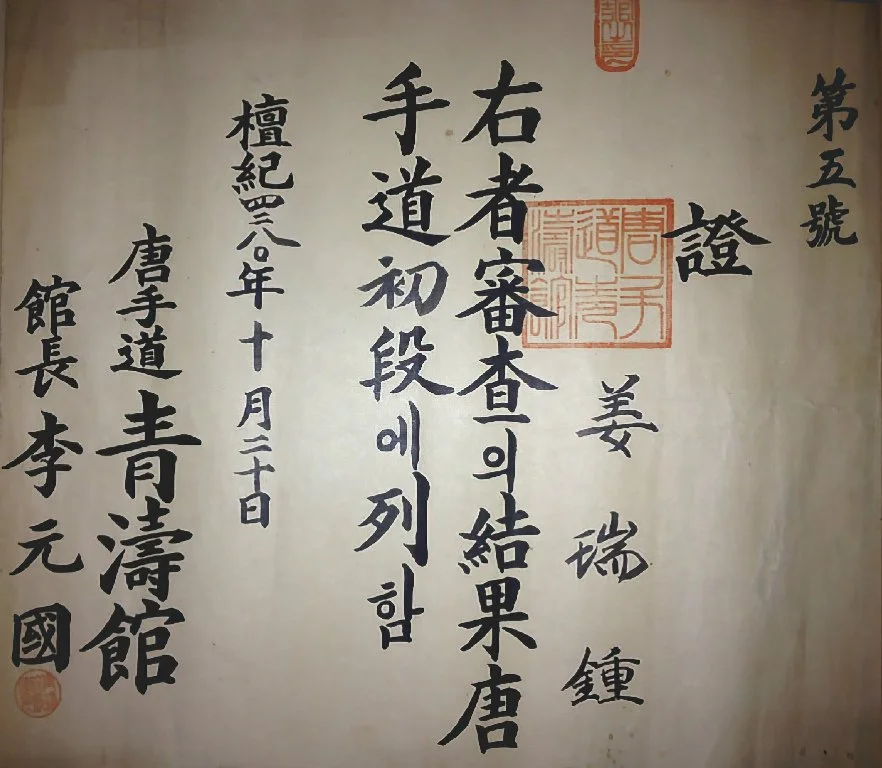 第五號
證
姜瑞鍾
右者審查의結果唐
手道初段에列함
檀紀四二八〇年十月二十日
唐手道青濤館
館長李元國
唐手道青濤館